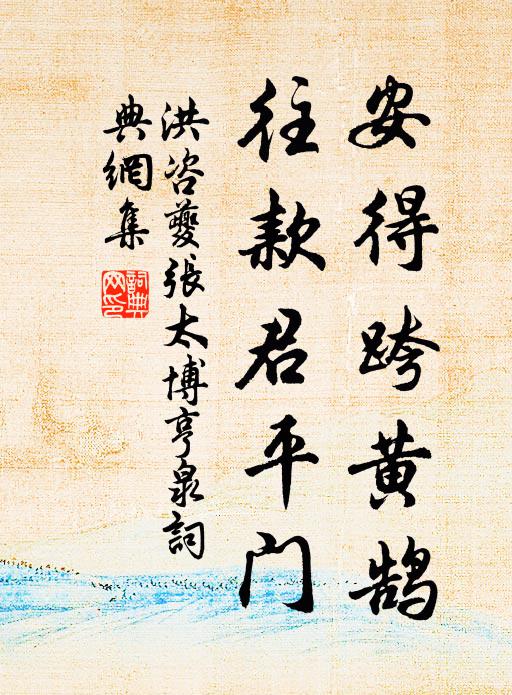 安得跨黄鹄
往款君平门
洪咨夔张太博亨泉詞
典網集
詞典网印